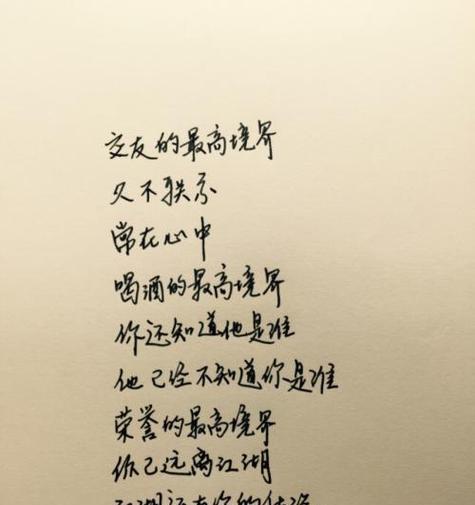 交友的最高境界
久不联系
常在心中
喝酒的最高境界
你还知道他是谁
他已经不知道你是谁
荣誉的最高境界
你已远离江湖